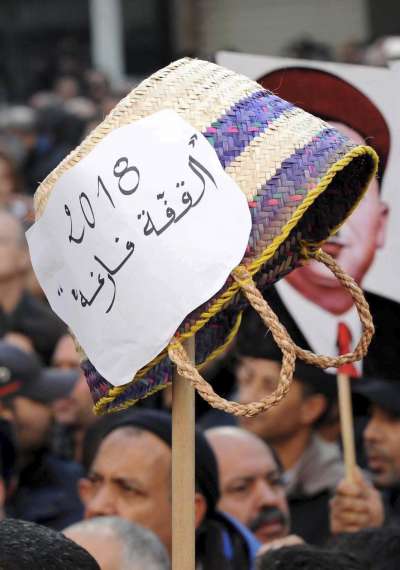 2018
"القفة فارغة"